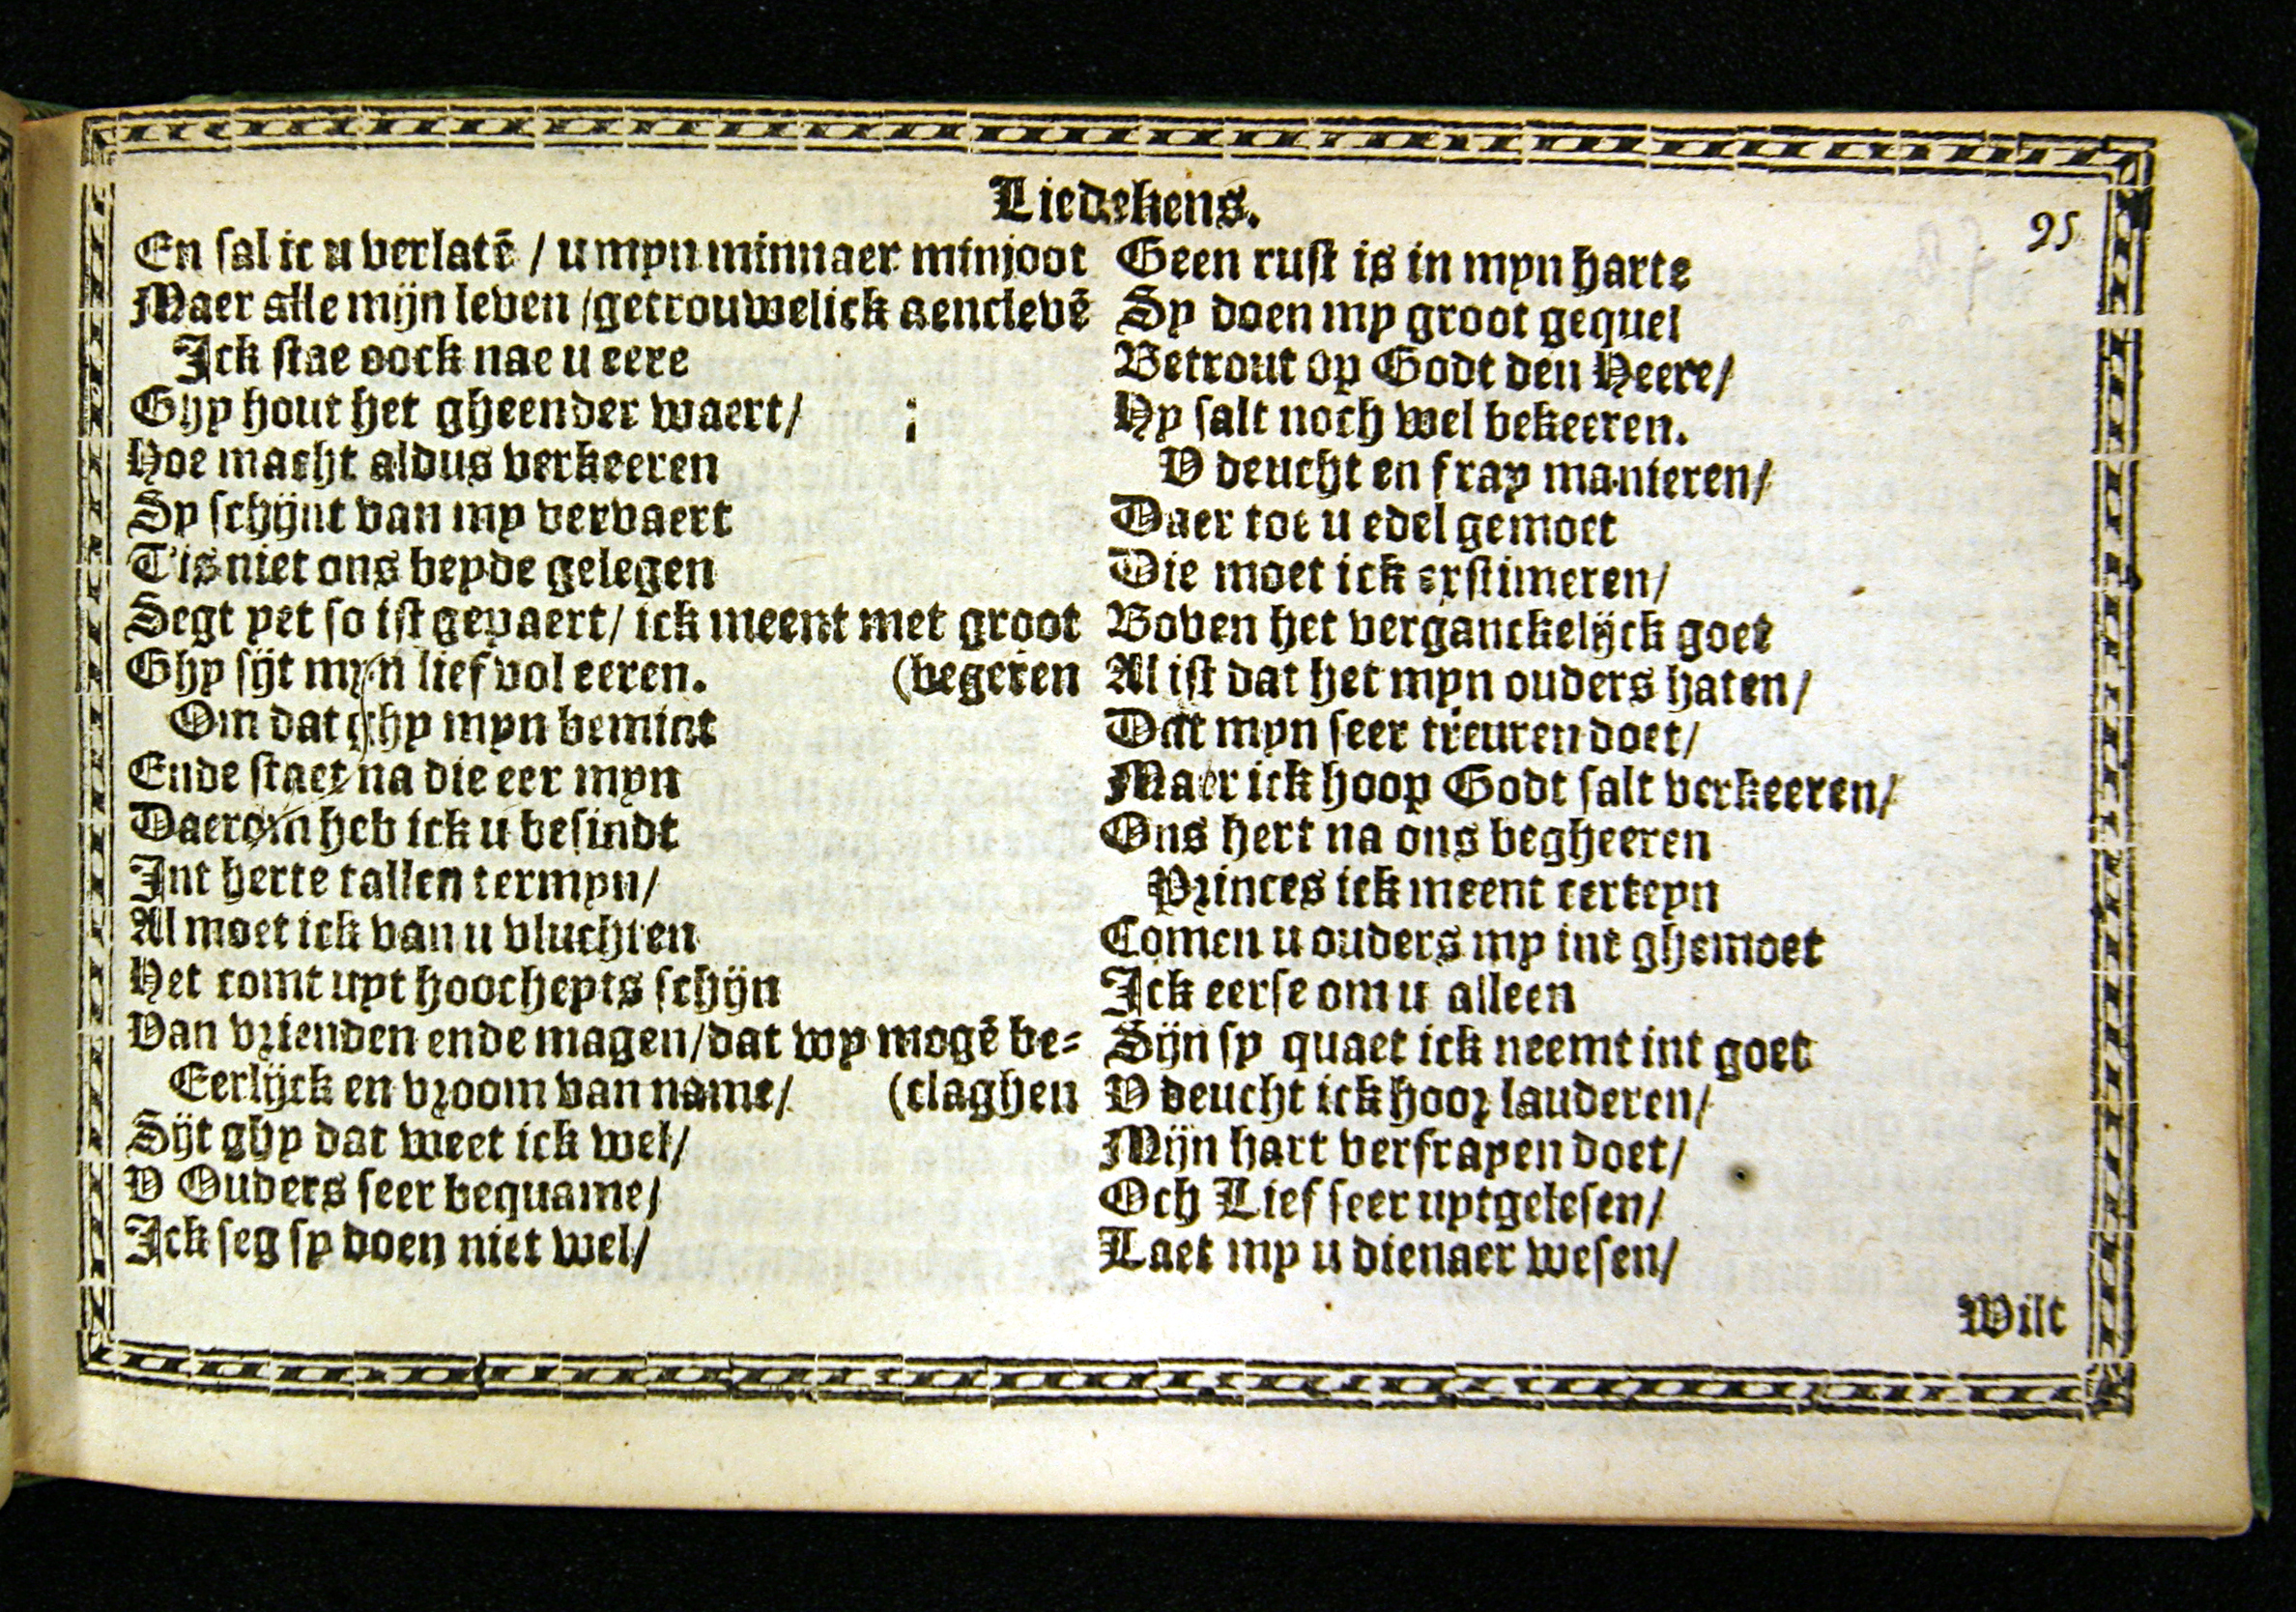 Liedekens.
95
En sal ic u verlatē / u myn minnaer minjoot
Maer alle mijn leven / getrouwelick aenclevē
Ick stae oock nae u eere
Ghy hout het gheender waert/ ;
Hoe macht aldus verkeeren
Sy schijnt van my vervaert
T'is niet ons beyde gelegen
Segt yet so ist gepaert/ ick meent met groot
Ghy sijt myn lief vol eeren. (begeren
Om dat ghy myn bemint
Ende staet na die eer myn
Daerom heb ick u besindt
Int herte tallen termyn/
Al moet ick van u vluchten
Het comt uyt hoocheyts schijn
Van vrienden ende magen/dat wy mogē be-
Eerlijck en vroom van name/ (claghen
Sijt ghy dat weet ick wel/
V Ouders seer bequame/
Ick seg sy doen niet wel/
Geen rust is in myn harte
Sy doen my groot gequel
Betrout op Godt den Heere/
Hy salt noch wel bekeeren.
V deucht en fray manieren/
Daer toe u edel gemoet
Die moet ick exstimeren/
Boven het verganckelijck goet
Al ist dat het myn ouders haten/
Dat myn seer treuren doet/
Maer ick hoop Godt salt verkeeren/
Ons hert na ons begheeren
Princes ick meent certeyn
Comen u ouders my int ghemoet
Ick eerse om u alleen
Sijn sy quaet ick neemt int goet
V deucht ick hoor lauderen/
Mijn hart verfrayen doet/
Och Lief seer uytgelesen/
Laet my u dienaer wesen/
Wilt